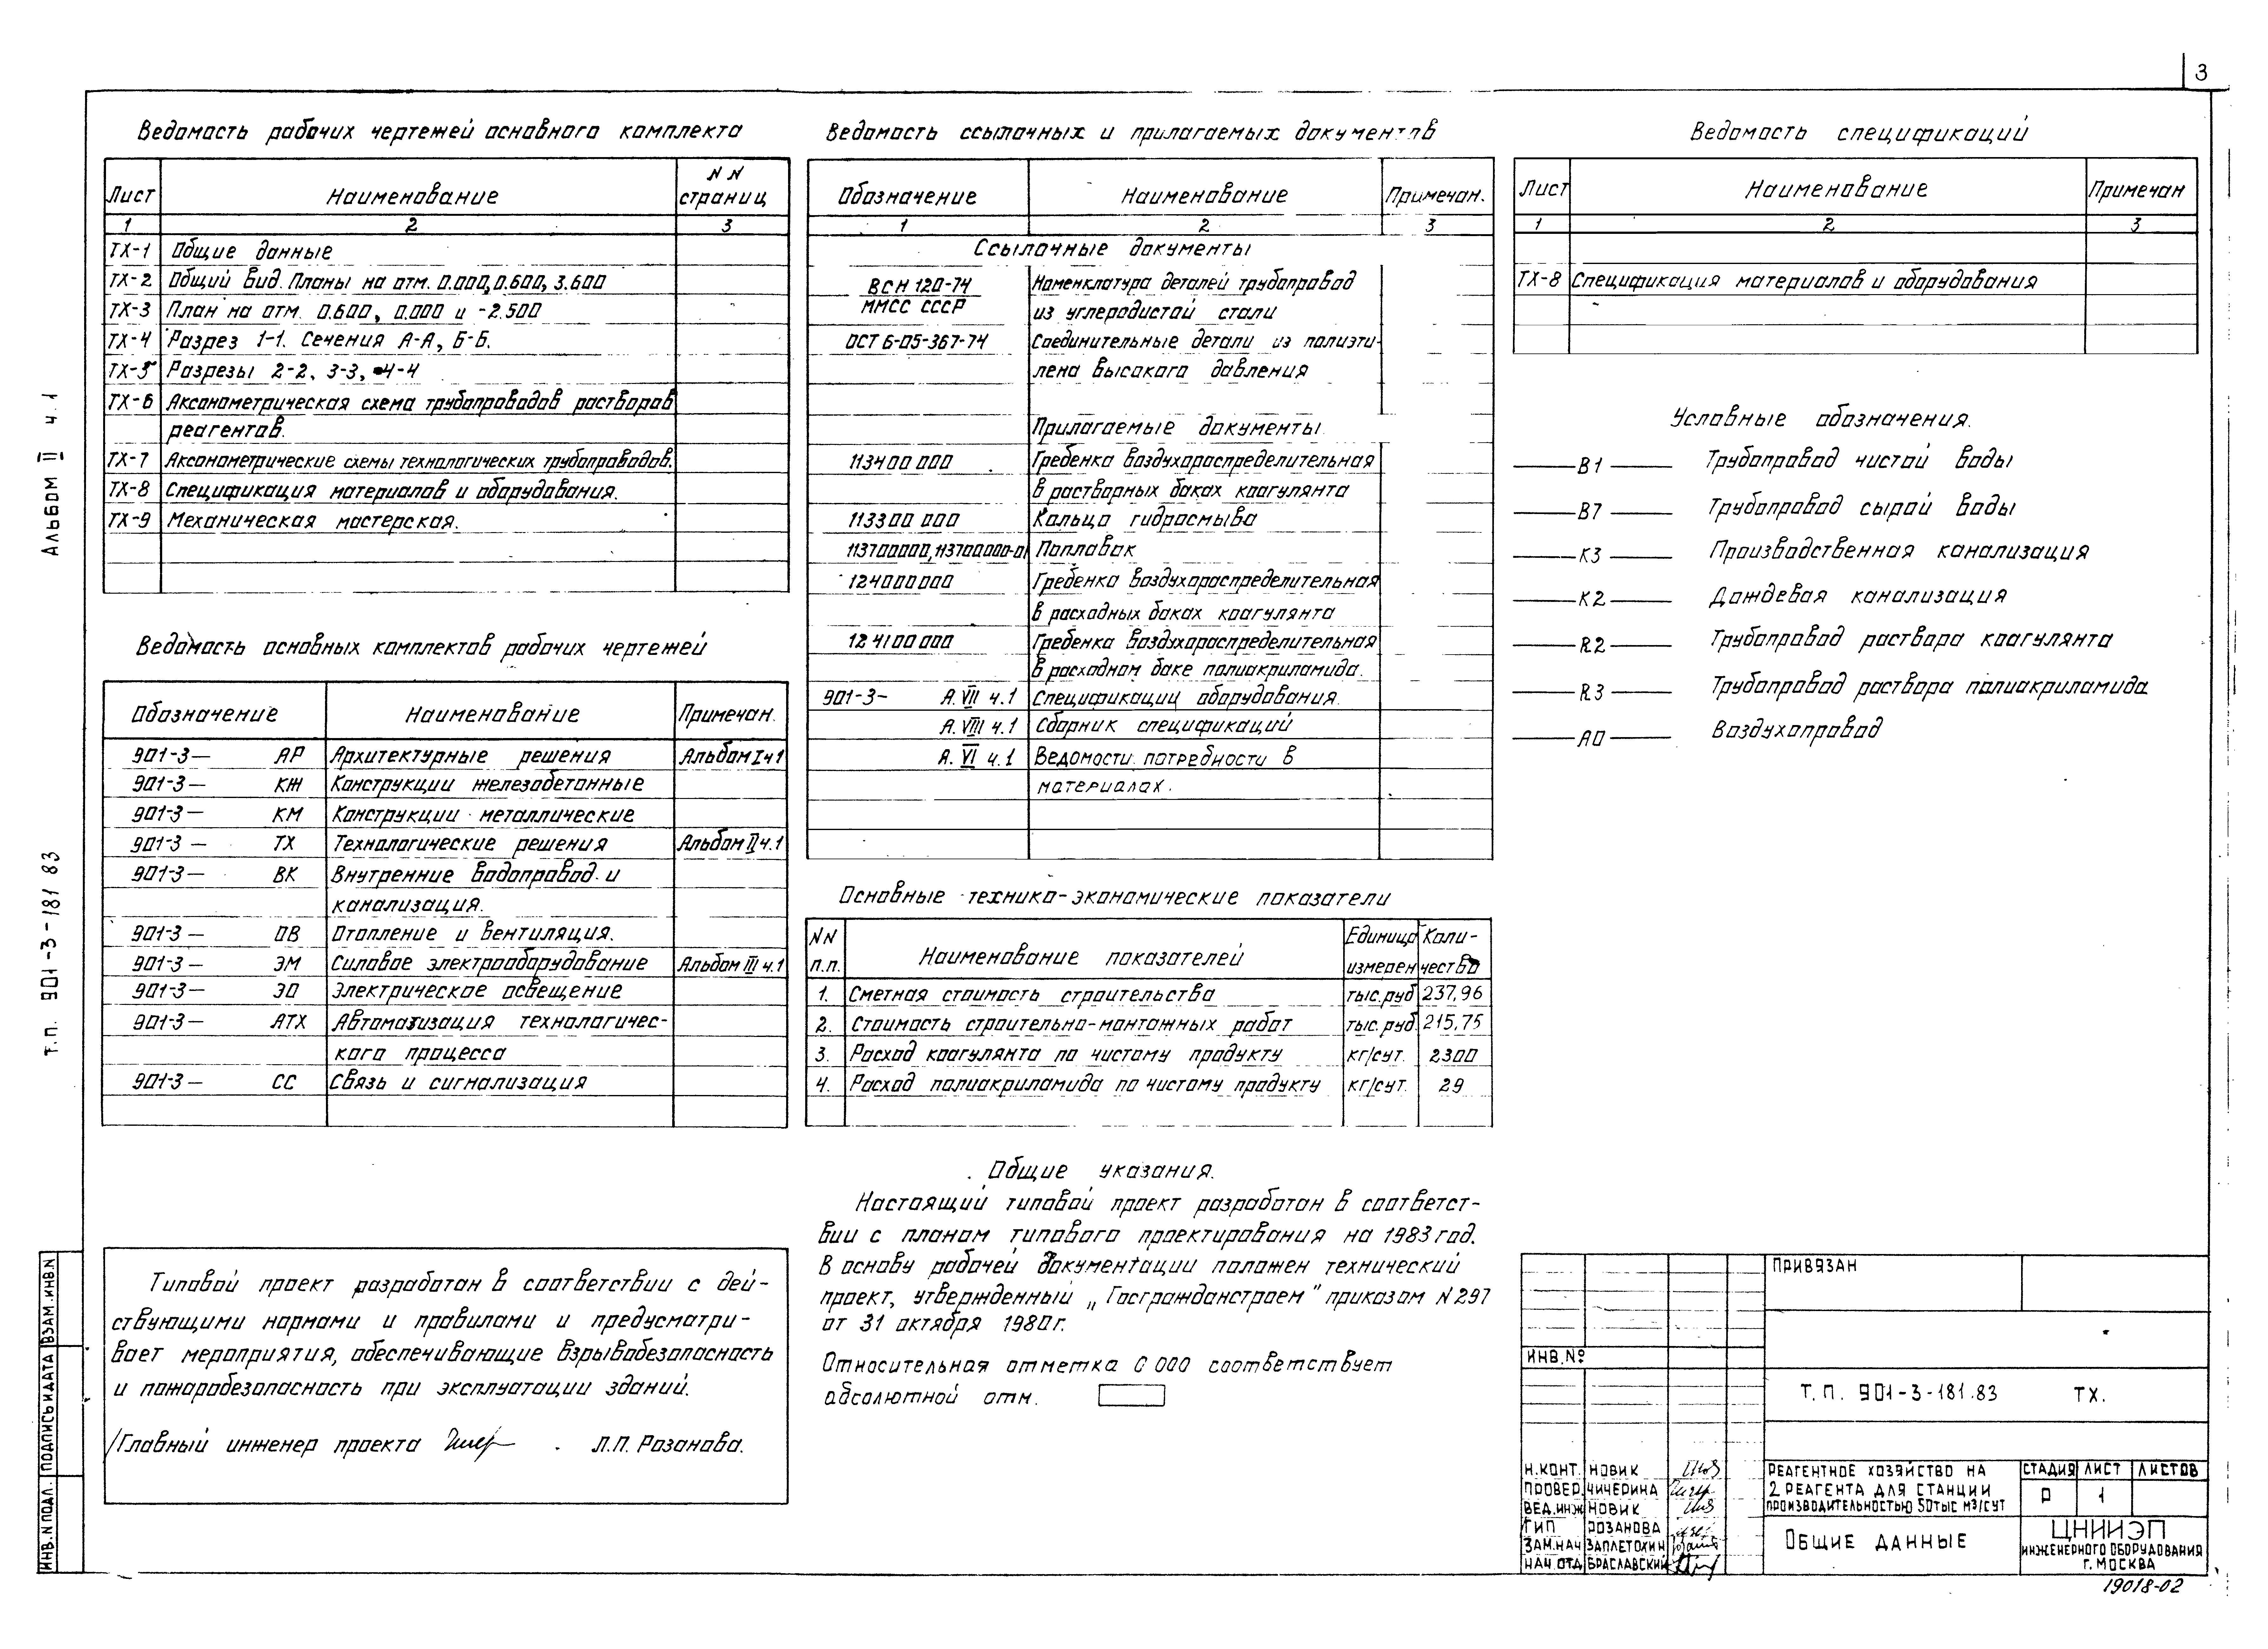 3
Ведомость рабочих чертежей основного комплекта
Лист Наименование NN страниц
1 2 3
ТХ-1 Общие данные
ТХ-2 Общий вид. Планы на отм. 0.000, 0.600, 3.600
ТХ-3 План на отм. 0.600, 0.000 и -2.500
ТХ-4 Разрез 1-1. Сечения А-А, Б-Б.
ТХ-5 Разрезы 2-2, 3-3, 4-4
ТХ-6 Аксонометрическая схема трубопроводов растворов
реагентов.
ТХ-7 Аксонометрические схемы технологических трубопроводов.
ТХ-8 Спецификация материалов и оборудования.
ТХ-9 Механическая мастерская.
Ведомость основных комплектов рабочих чертежей
Обозначение Наименование Примечан.
901-3— АР Архитектурные решения Альбом I ч1
901-3— КЖ Конструкции железобетонные
901-3— КМ Конструкции металлические
901-3— ТХ Технологические решения Альбом II ч.1
901-3— ВК Внутренние водопровод и
канализация.
901-3— ОВ Отопление и вентиляция.
901-3— ЭМ Силовое электрооборудование Альбом III ч.1
901-3— ЭО Электрическое освещение
901-3— АТХ Автоматизация технологичес-
кого процесса
901-3— СС Связь и сигнализация
Типовой проект разработан в соответствии с дей-
ствующими нормами и правилами и предусматри-
вает мероприятия, обеспечивающие взрывобезопасность
и пожаробезопасность при эксплуатации зданий.
Главный инженер проекта Л.П. Розанова.
Ведомость ссылочных и прилагаемых документов
Обозначение Наименование Примечан.
1 2 3
Ссылочные документы
ВСН 120-74 Номенклатура деталей трубопровод
ММСС СССР из углеродистой стали
ОСТ 6-05-367-74 Соединительные детали из полиэти-
лена высокого давления
Прилагаемые документы.
113400 000 Гребенка воздухораспределительная
в растворных баках коагулянта
113300 000 Кольцо гидросмыва
113700000, 113700000-01 Поплавок
124000000 Гребенка воздухораспределительная
в расходных баках коагулянта
124100 000 Гребенка воздухораспределительная
в расходном баке полиакриламида.
901-3- А. VII ч.1 Спецификации оборудования.
А. VIII ч.1 Сборник спецификаций
А. VI ч.1 Ведомости потребности в
материалах.
Основные технико-экономические показатели
NN п.п. Наименование показателей Единица измерен Коли-чество
1. Сметная стоимость строительства тыс.руб 237,96
2. Стоимость строительно-монтажных работ тыс.руб. 215,75
3. Расход коагулянта по чистому продукту кг/сут. 2300
4. Расход полиакриламида по чистому продукту кг/сут. 29
Общие указания.
Настоящий типовой проект разработан в соответст-
вии с планом типового проектирования на 1983 год.
В основу рабочей документации положен технический
проект, утвержденный „Госгражданстроем" приказом N 297
от 31 октября 1980г.
Относительная отметка 0 000 соответствует
абсолютной отм.
Ведомость спецификаций
Лист Наименование Примечан
1 2 3
ТХ-8 Спецификация материалов и оборудования
Условные обозначения.
В1 Трубопровод чистой воды
В7 Трубопровод сырой воды
К3 Производственная канализация
К2 Дождевая канализация
R2 Трубопровод раствора коагулянта
R3 Трубопровод раствора полиакриламида
А0 Воздухопровод
ПРИВЯЗАН
ИНВ.№
Т.П. 901-3-181.83 ТХ.
Н.КОНТ. НОВИК
ПРОВЕР. ЧИЧЕРИНА
ВЕД.ИНЖ НОВИК
ГИП РОЗАНОВА
ЗАМ.НАЧ ЗАПЛЕТОХИН
НАЧ.ОТД БРАСЛАВСКИЙ
РЕАГЕНТНОЕ ХОЗЯЙСТВО НА
2 РЕАГЕНТА ДЛЯ СТАНЦИИ
ПРОИЗВОДИТЕЛЬНОСТЬЮ 50 ТЫС М3/СУТ
СТАДИЯ ЛИСТ ЛИСТОВ
Р 1
ОБЩИЕ ДАННЫЕ
ЦНИИЭП
ИНЖЕНЕРНОГО ОБОРУДОВАНИЯ
Г. МОСКВА
19018-02
АЛЬБОМ II ч.1
Т.П. 901-3-181 83
ВЗАМ.ИНВ.N
ПОДПИСЬ И ДАТА
ИНВ.N ПОДЛ.